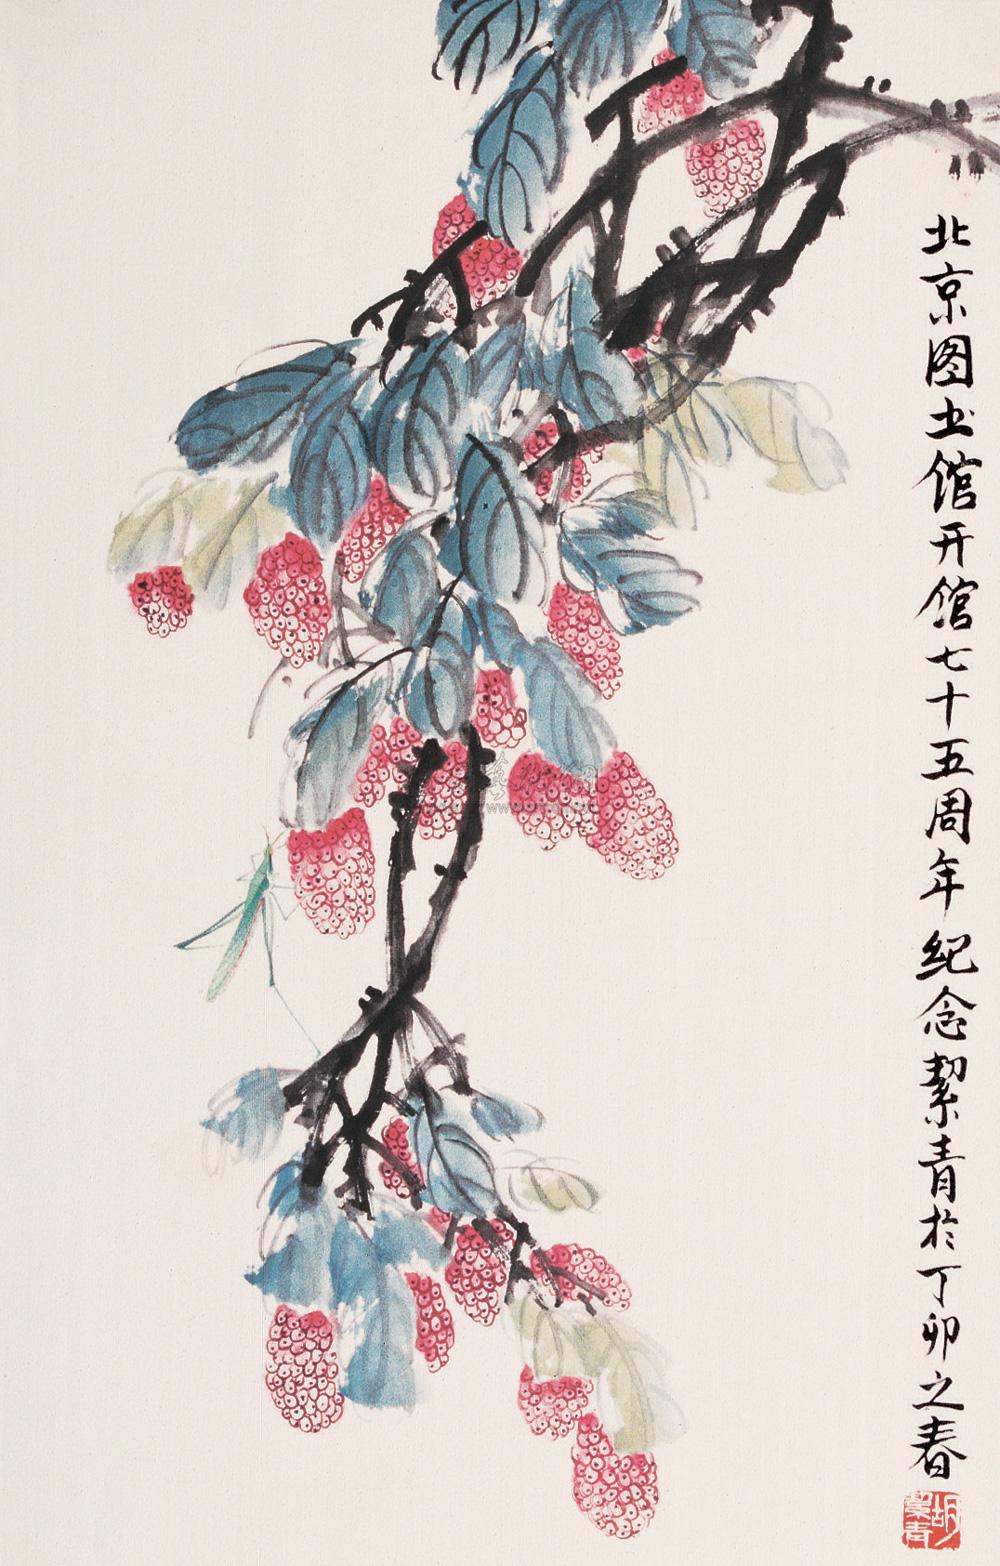 北京图书馆开馆七十五周年纪念絜青於丁卯之春
胡絜青